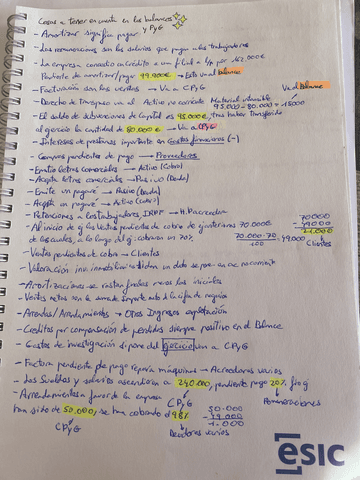 Cosas a tener en cuenta en los balances
y PyG
- Amortizar significa pagar
- Las remuneraciones son los salarios que pagan a los trabajadores
- La empresa concedio un crédito a un filial a L/p por 162.000€
Pendiente de amortizar/pagar 99.900€ → Esto va al balance
- Facturación son las ventas → Va a CPyG
Va al Balance
- Derecho de Traspaso va al Activo no corriente Material intangible
95.000 - 80.000 = 15000
- El saldo de subvenciones de Capital es 95.000€, tras haber transferido
al ejercicio la cantidad de 80.000€ → Va a CPyG
- Intereses de prestamos importante en Gastos financieros (-)
- Compras pendientes de pago → Proveedores
- Emitio letras comerciales → Activo (Cobro)
- Acepta letras comerciales → Pasivo (Deuda)
- Emite un pagaré → Pasivo (Deuda)
- Acepta un pagaré → Activo (Cobro)
- Retenciones a los trabajadores, IRPF → H.P acreedora
- Al inicio de ej las ventas pendientes de cobro de ej anteriores 70.000€
de los cuales, a lo largo del ej. cobraron un 70%.
70000
- 49000
21.000
Clientes
70.000·70
100
= 49.000
- Ventas pendientes de cobro → Clientes
- Valoración inv. inmobiliarias
- Amortizaciones se restan
- Ventas netas son la suma de importe neto d la cifra de negocios
- Arrendos/Arrendamientos → Otros Ingresos explotación
- Creditos por compensación de perdidas siempre positivo en el Balance
- Gastos de investigación si pone del ejercicio van a CPyG
- Factura pendiente de pago reparar máquinas → Acreedores varios
- Los Sueldos y salarios ascendieron a 240.000, pendiente pago 20% fin ej
CPyG
Remuneraciones
- Arrendamientos a favor de la empresa
han sido de 50.000, se han cobrado el 98%
CPyG
50.000
- 49.000
1.000
Deudores varios
esic